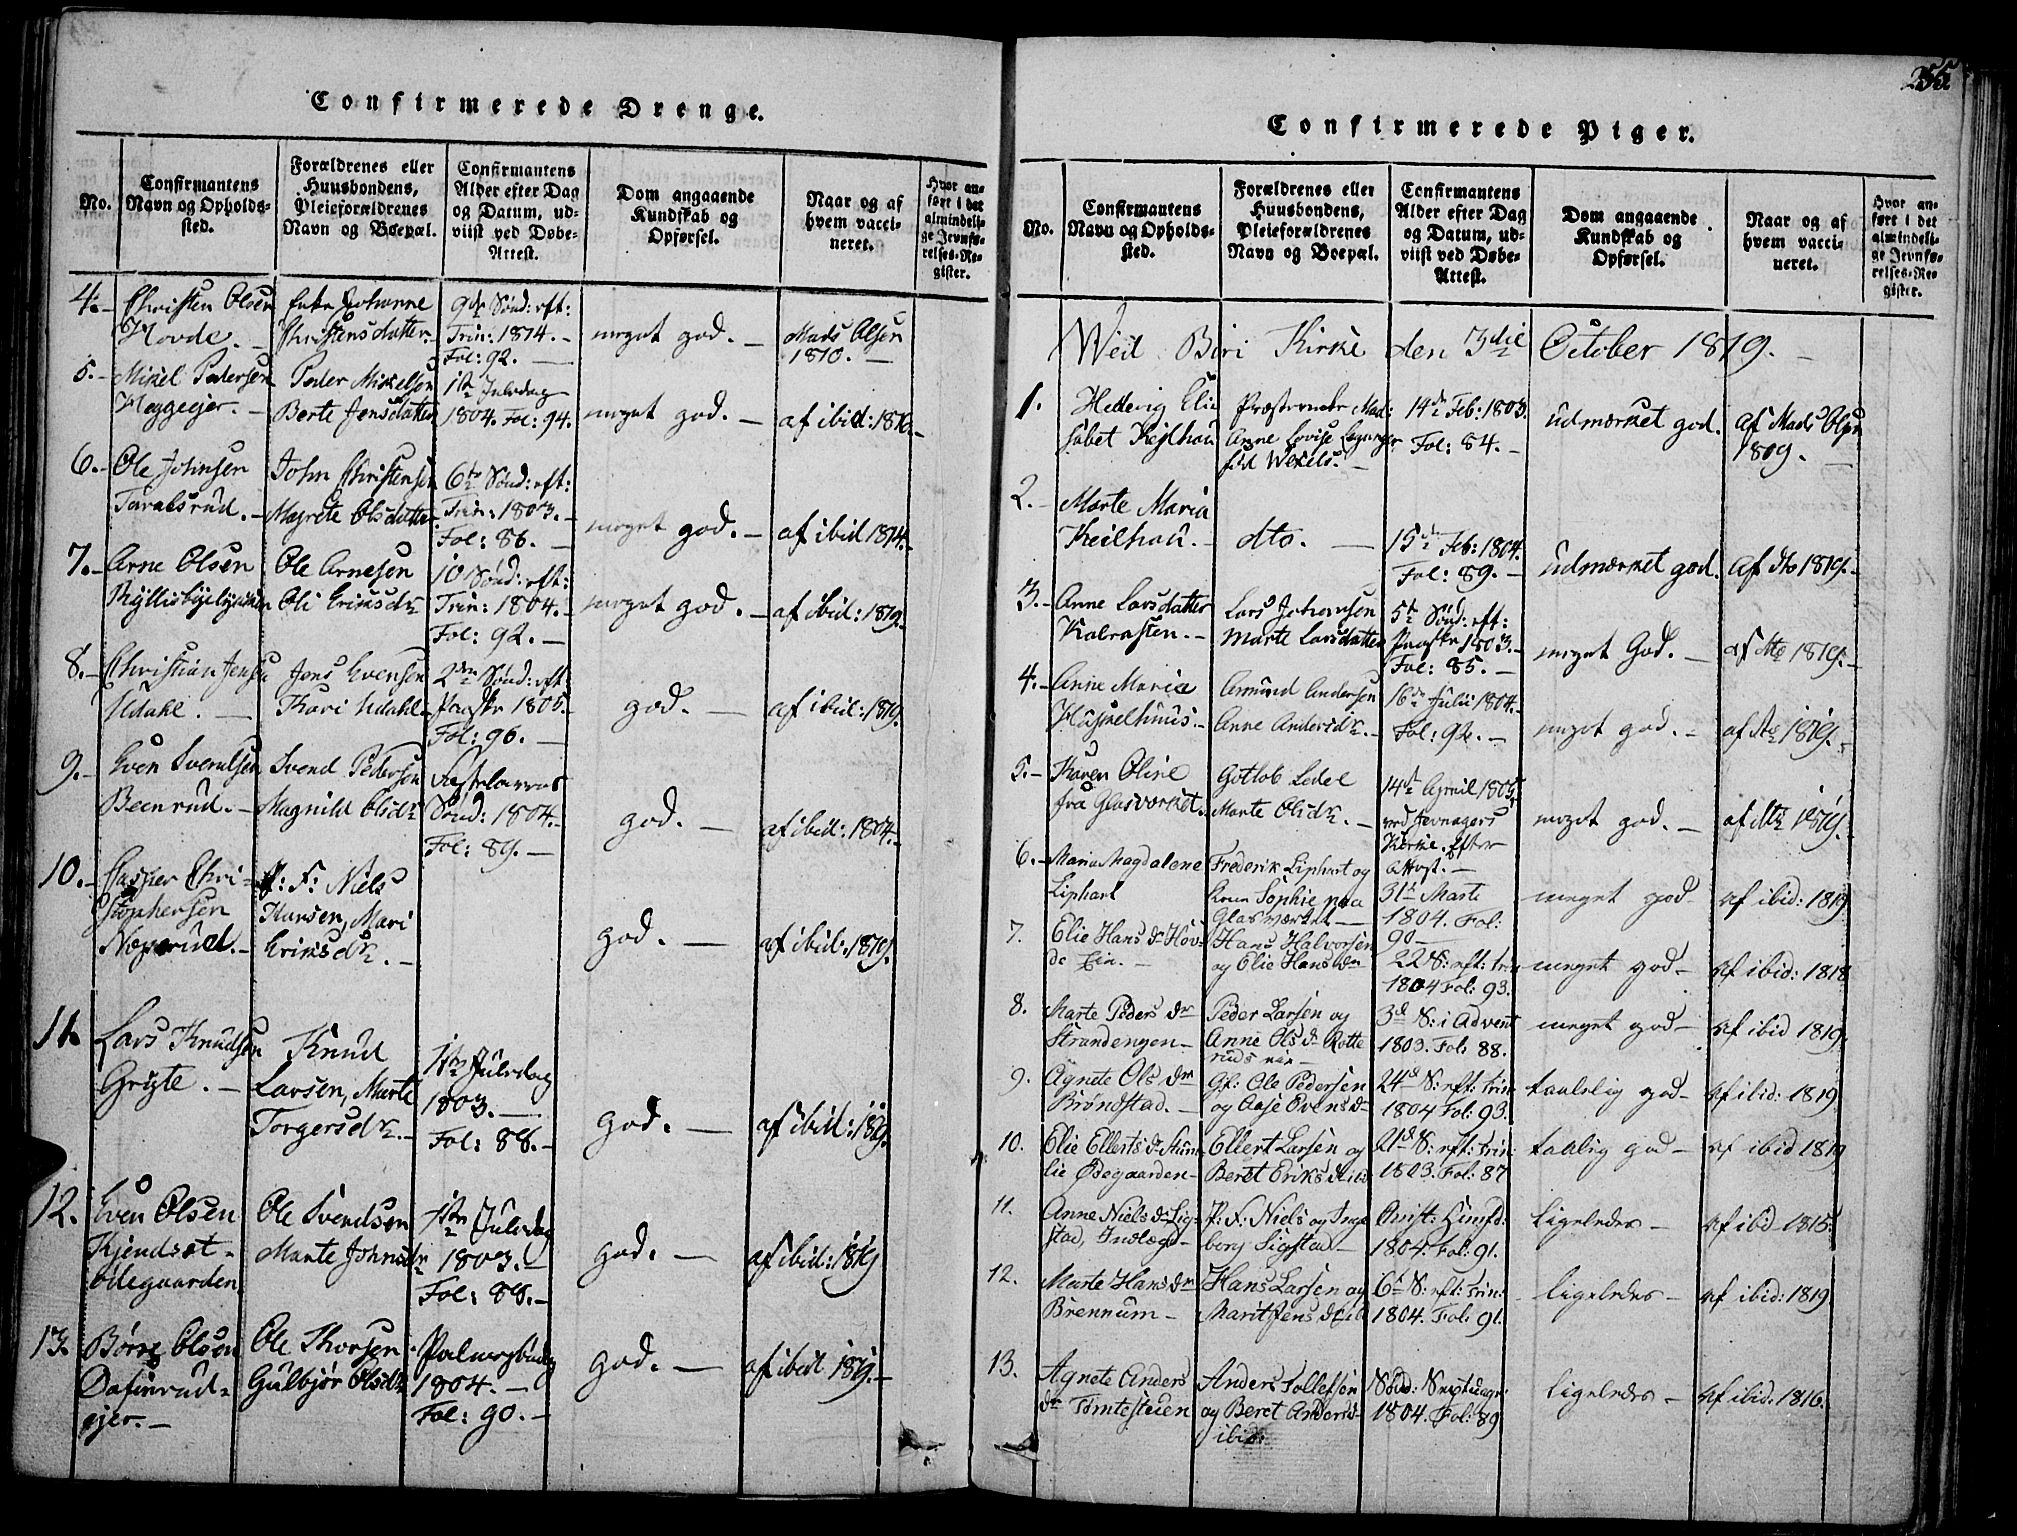 255
Confirmerede Drenge.
No.
Confirmantens
Navn og Opholds-
sted.
Forældrenes eller
Huusbondens,
Pleieforældrenes
Navn og Boepæl.
Confirmantens
Alder efter Dag
og Datum, ud-
viist ved Døbe-
Attest.
Dom angaaende
Kundskab og
Opførsel.
Naar og af
hvem vacci-
neret.
Hvor an-
ført i det
almindeli-
ge Jevnfø-
relses-Re-
gister.
4.- Christen Olsen
Hovde. -
Enke Johanne
Christensdatter.
Sønd: eft:
Trin: 1814. -
Fol: 92. -
meget god. -
Mads Olsen
1810. -
5.- Mikel Pedersen
Heggeejer. -
Peder Mikelsen
Berte Jensdatter
1ste Juledag
1804. Fol: 94.
meget god. -
af ibid: 1816. -
6.- Ole Johnsen
Taralsrud. -
John Christensen
Magrete Olsdatter
6te Sønd: eft:
Trin: 1803. -
Fol: 86. -
meget god. -
af ibid 1814. -
7.- Arne Olsen
Ole Arnesen
Oli Eriksdr
10 Sønd: eft:
Trin: 1804. -
Fol: 92. -
meget god. -
af ibid: 1819. -
8.- Christian Jensen
Udahl. -
Jens Evensen
Kari Udahl -
2den Sønd: eft:
Paaske 1805. -
Fol: 96. -
god. -
af ibid: 1819.
9.- Even Svendsen
Beenrud. -
Svend Pedersen
Magnild Olsdr
Fastelavns
Sønd: 1804. -
Fol: 89. -
god. -
af ibid: 1804. -
10.- Casper Chri-
stophersen
P: F: Niels
Hansen, Mari
Eriksdr. -
god. -
af ibid: 1819.
11. Lars Knudsen
Gryte. -
Knud
Larsen, Marte
Torgersdr. -
1ste Juledag
1803. -
Fol: 88. -
god. -
af ibid: 1819.
12. Even Olsen
Kjendset-
ødegaarden.
Ole Svendsen
Marte Johnsdr
1ste Juledag
1803. -
Fol: 88. -
god. -
af ibid: 1819
13. Børre Olsen
Dafinrud-
ejer. -
Ole Thorsen
Gulbjør Olsdr
Palmesøndag
1804. -
Fol: 90. -
god. -
af ibid 1819. -
Confirmerede Piger.
No.
Confirmantens
Navn og Opholds-
sted.
Forældrenes eller
Huusbondens,
Pleieforældrenes
Navn og Boepæl.
Confirmantens
Alder efter Dag
og Datum, ud-
viist ved Døbe-
Attest.
Dom angaaende
Kundskab og
Opførsel.
Naar og af
hvem vacci-
neret.
Hvor an-
ført i det
almindeli-
ge Jevnfø-
relses-Re-
gister.
Wed Biri Kirke den 3die October 1819. -
1. Hedevig Eli
sabet Kejlhau
Præsteenke Mad:
Anne Lovise
fød Wexels. -
14de Feb: 1803.
Fol: 84. -
udmærket god.
af Mads Olsen
1809. -
2.- Marte Maria
Keilhau. -
dto. -
15de Feb: 1804.
Fol: 89. -
udmærket god.
af dto 1819. -
3.- Anne Larsdatter
Kalrasten. -
Lars Johansen
Marte Larsdatter
5te Sønd: eft:
Paaske 1803. -
Fol: 85. -
meget God. -
af dto 1819. -
4.- Anne Maria
Haskelhuus. -
Amund Andersen
Anne Andersdr. -
16de Julii 1804. -
Fol: 92. -
meget god. -
af dto 1819. -
5.- Karen Oline
fra Glasværket.
Gotlob Ledel
Marte Olsdr. -
14de April 1805,
ved Jevnagers
Kirke. efter
Attest. -
meget god. -
af dto 1819. -
6.- Maria Magdalene
Liphart
Frederik Liphart og
Kone Sophie paa
Glasværket -
31te Marts
1804. Fol:
90 -
meget god -
af ibid: 1819
7. Elie Hans dr Hov-
de Eie. -
Hans Halvorsen
og Elie Hans dr
22 S: eft: Trin
1804 Fol: 93.
meget god -
af ibid: 1818
8. Marte Peders dr
Strandengen -
Peder Larsen og
Anne Ols dr Rotte
ruds eie -
3de S: i Advent
1803. Fol: 88.
meget god -
af ibid 1819.
9. Agnete Ols dr
Brøndstad. -
Gf: Ole Pedersen
og Aase Evens dr
24de S: eft: Trin
1804 Fol: 93.
taalelig god -
af ibid: 1819
10. Elie Ellerts dr Hun-
lie Ødegaarden -
Ellert Larsen og
Beret Eriks dr ibid
21de S: eft: Trin:
1803. Fol: 87
taalelig god -
af ibid 1819
11. Anne Niels dr Lig-
stad, Indlægd -
P: F: Niels og Inge
borg Sigstad -
Christi Himfd:
1804. Fol: 91.
ligeledes -
af ibid 1815.
12. Marte Hans dr
Brennum -
Hans Larsen og
Marit Jens dr ibid
6te S: eft: Trin:
1804. Fol: 91.
ligeledes -
af ibid: 1819
13. Agnete Anders
dr Tømtesteien
Anders Tollefsen
og Beret Anders dr
ibid:
1804. Fol: 89
ligeledes -
af ibid: 1816.